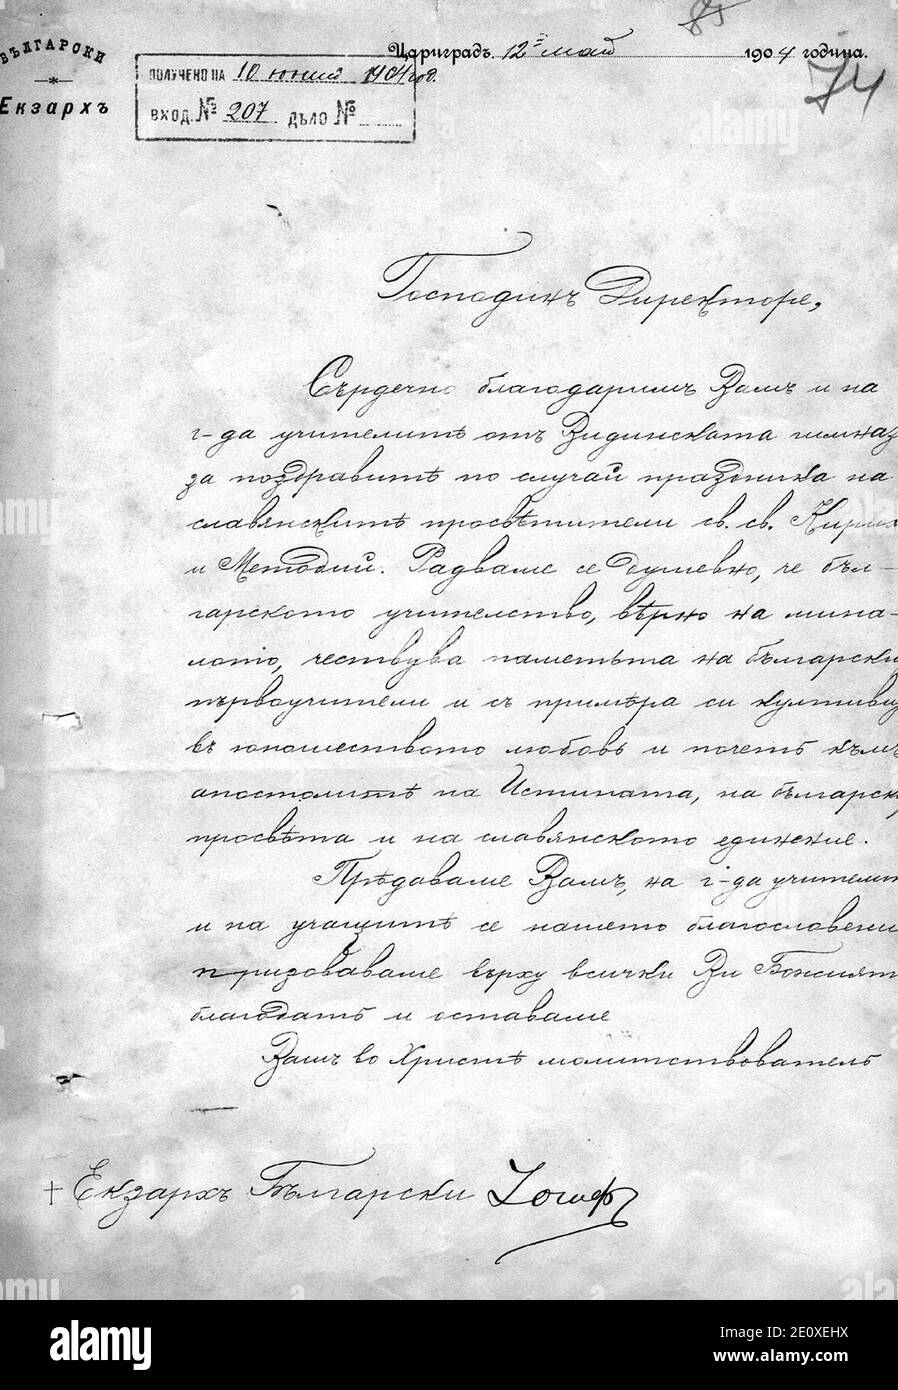 85
БЪЛГАРСКИ
Екзархъ
Цариградъ, 12 май 1904 година.
74
ПОЛУЧЕНО НА 10 юний 1904 год.
ВХОД. № 207 ДѢЛО №
Господинъ Директоре,
Сърдечно благодаримъ Вамъ и на
г-да учителитѣ отъ Видинската гимназ
за поздравитѣ по случай праздника на
славянскитѣ просвѣтители св. св. Кирил
и Методий. Радваме се душевно, че бъл-
гарското учителство, вѣрно на мина-
лото, чествува паметьта на български
първоучители и съ примѣра си култиви
въ юношеството любовь и почеть къмъ
апостолитѣ на Истината, на българск
просвѣта и на славянското единение.
Прѣдаваме Вамъ, на г-да учителит
и на учащитѣ се нашето благословени
призоваваме върху всички Ви Божият
благодать и оставаме
Вамъ во Христѣ молитствователь
† Екзархъ Български Йосиф
alamy
Image ID: 2E0XEHX
www.alamy.com